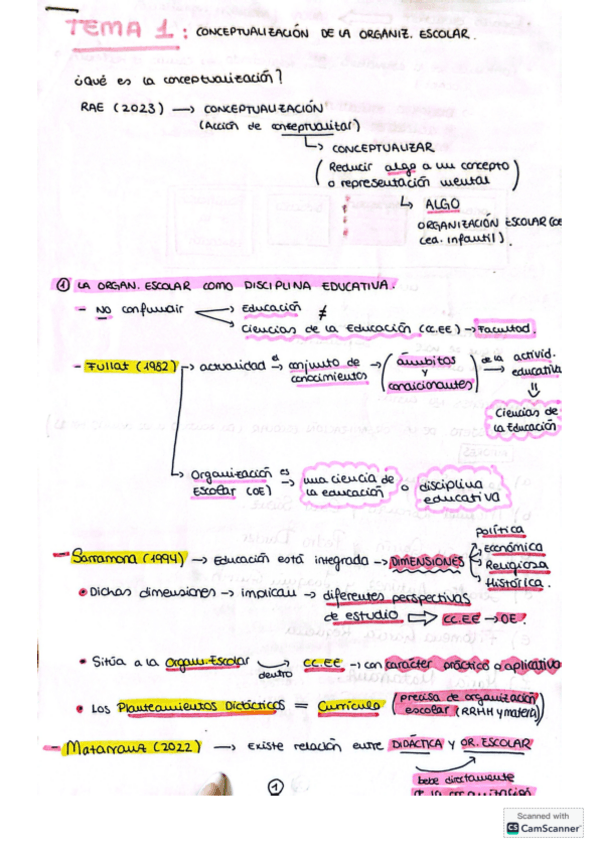 TEMA 1: CONCEPTUALIZACIÓN DE LA ORGANIZ. ESCOLAR.
¿Qué es la conceptualización?
RAE (2023) → CONCEPTUALIZACIÓN
(Acción de conceptualizar)
↳ CONCEPTUALIZAR
(Reducir algo a un concepto
o representación mental)
↳ ALGO
ORGANIZACIÓN ESCOLAR (OE
(ed. infantil).
① LA ORGAN. ESCOLAR COMO DISCIPLINA EDUCATIVA.
- NO confundir → Educación ≠
→ Ciencias de la Educación (CC.EE) → Facultad.
- Fullat (1982) → actualidad es → conjunto de conocimientos → (ámbitos y condicionantes) de la → activid. educativa
⇓
Ciencias de
la Educación
↳ Organización Escolar (OE) es → una ciencia de la educación o disciplina educativa
- Sarramona (1994) → Educación está integrada → DIMENSIONES → política
Económica
Religiosa
Histórica.
• Dichas dimensiones → implican → diferentes perspectivas
de estudio ⇨ CC.EE → OE.
• Sitúa a la Organ. Escolar dentro → CC.EE → con carácter práctico o aplicativo
• Los Planteamientos Didácticos = Currículo (precisa de organización
escolar (RRHH y materia))
- Matarranz (2022) → Existe relación entre DIDÁCTICA y OR. ESCOLAR
bebe directamente
①
Scanned with
CS CamScanner